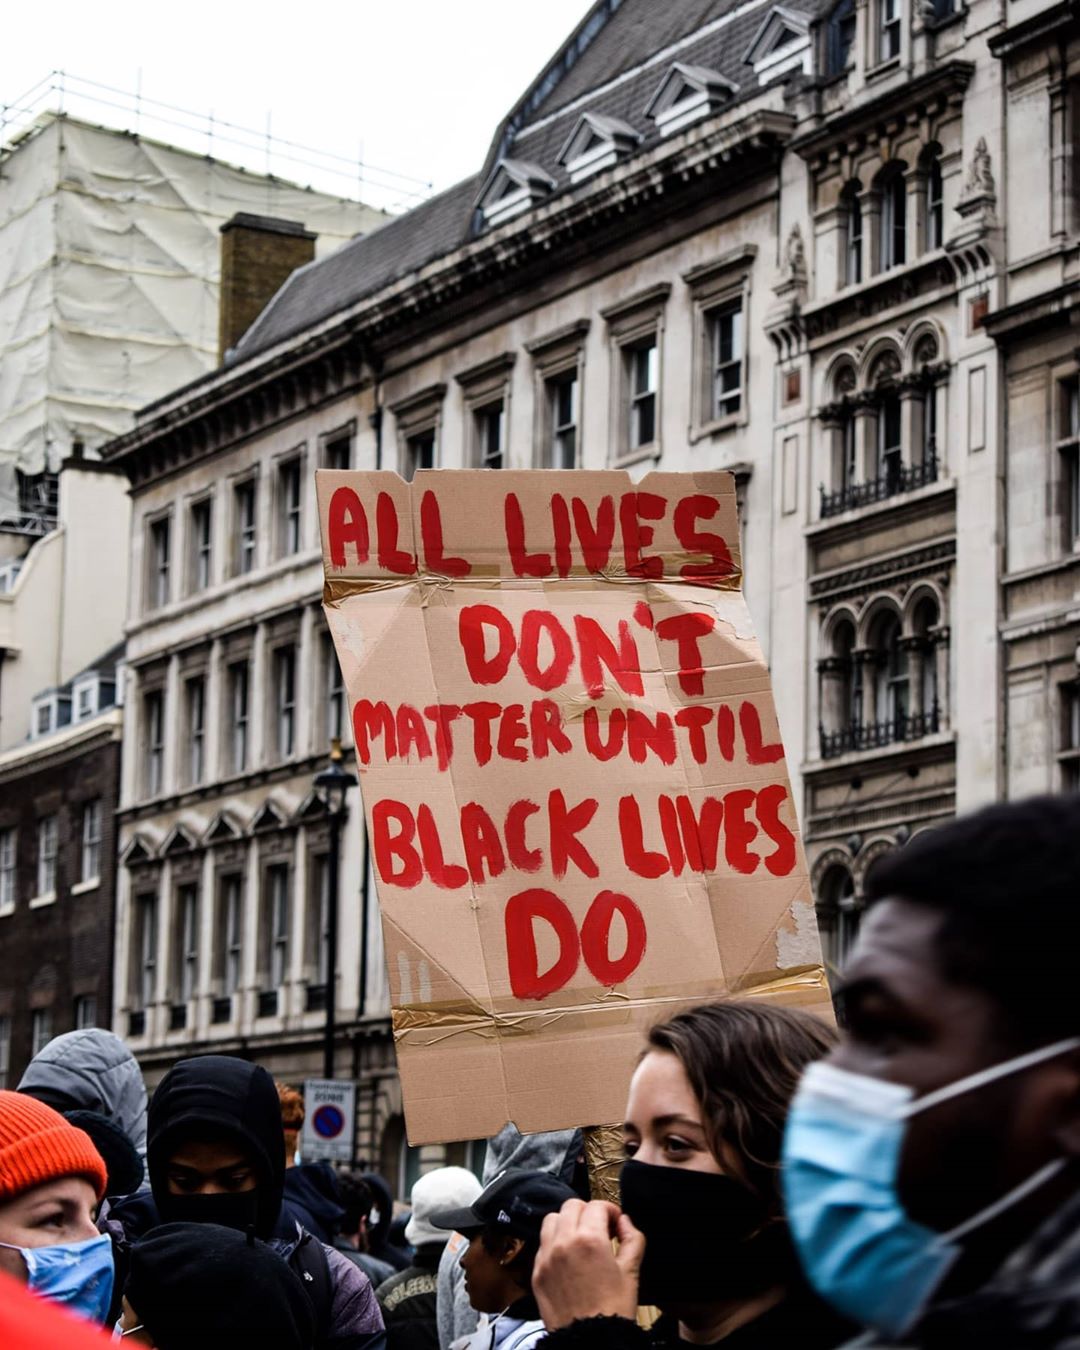 ALL LIVES
DON'T
MATTER UNTIL
BLACK LIVES
DO